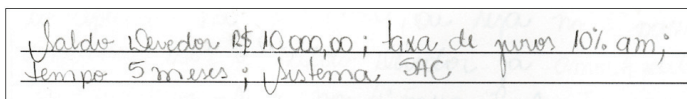 Saldo Devedor R$ 10 000,00 ; taxa de juros 10% am;
tempo 5 meses ; Sistema SAC